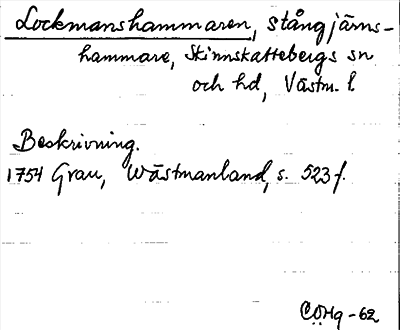 Lockmanshammaren, stångjärns-
hammare, Skinnskattebergs sn
och hd, Västm. l.
Beskrivning.
1754 Grau, Wästmanland, s. 523 f.
CÖHg-62